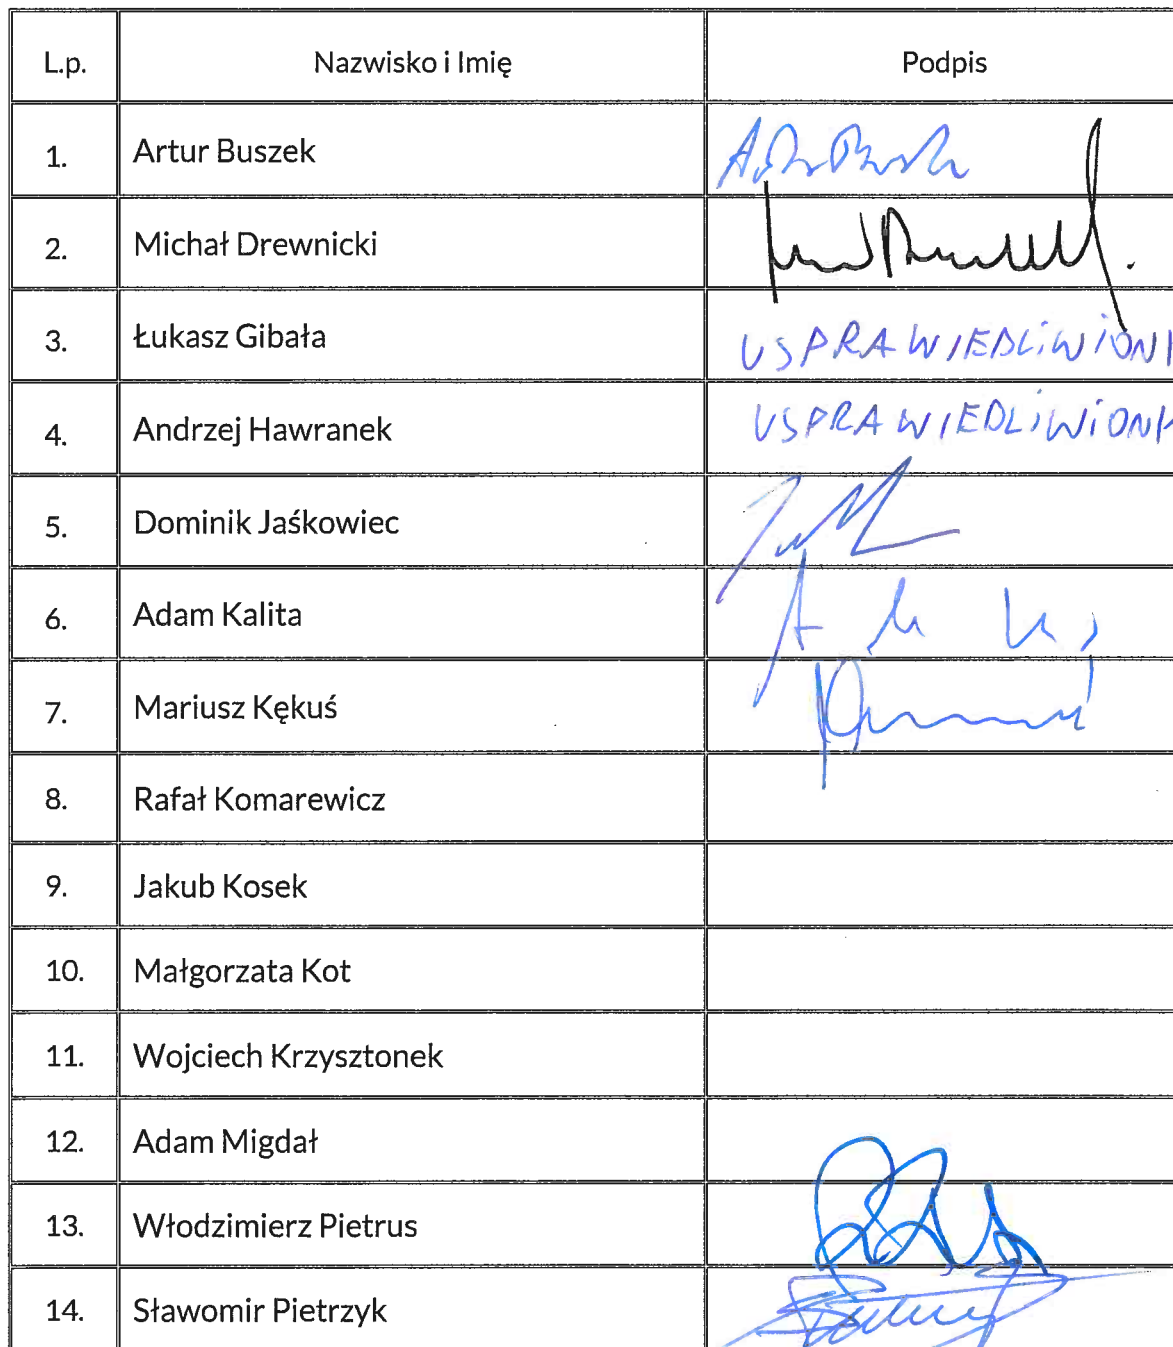 L.p. Nazwisko i Imię Podpis
1. Artur Buszek
2. Michał Drewnicki
3. Łukasz Gibała USPRAWIEDLIWIONY
4. Andrzej Hawranek USPRAWIEDLIWIONY
5. Dominik Jaśkowiec
6. Adam Kalita
7. Mariusz Kękuś
8. Rafał Komarewicz
9. Jakub Kosek
10. Małgorzata Kot
11. Wojciech Krzysztonek
12. Adam Migdał
13. Włodzimierz Pietrus
14. Sławomir Pietrzyk